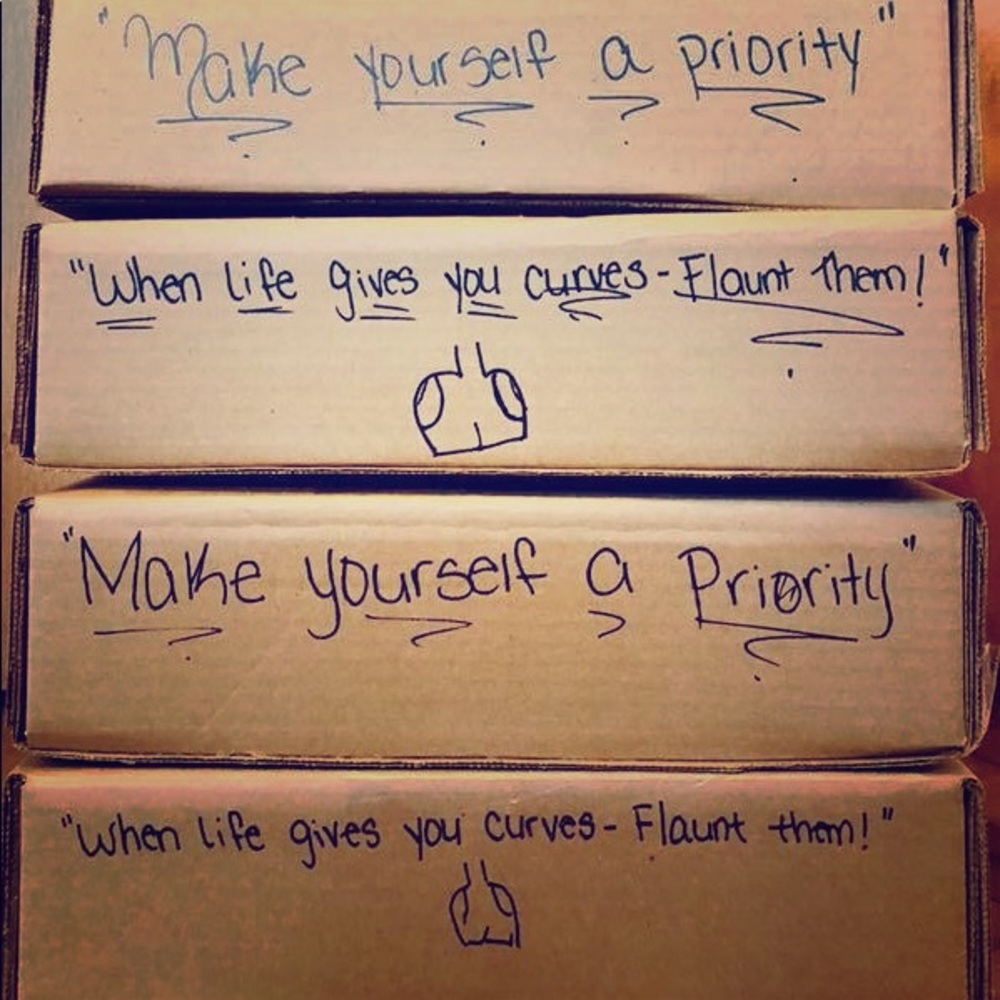 "Make yourself a priority"
"When life gives you curves - Flaunt them!"
"Make yourself a Priority"
"When life gives you curves - Flaunt them!"